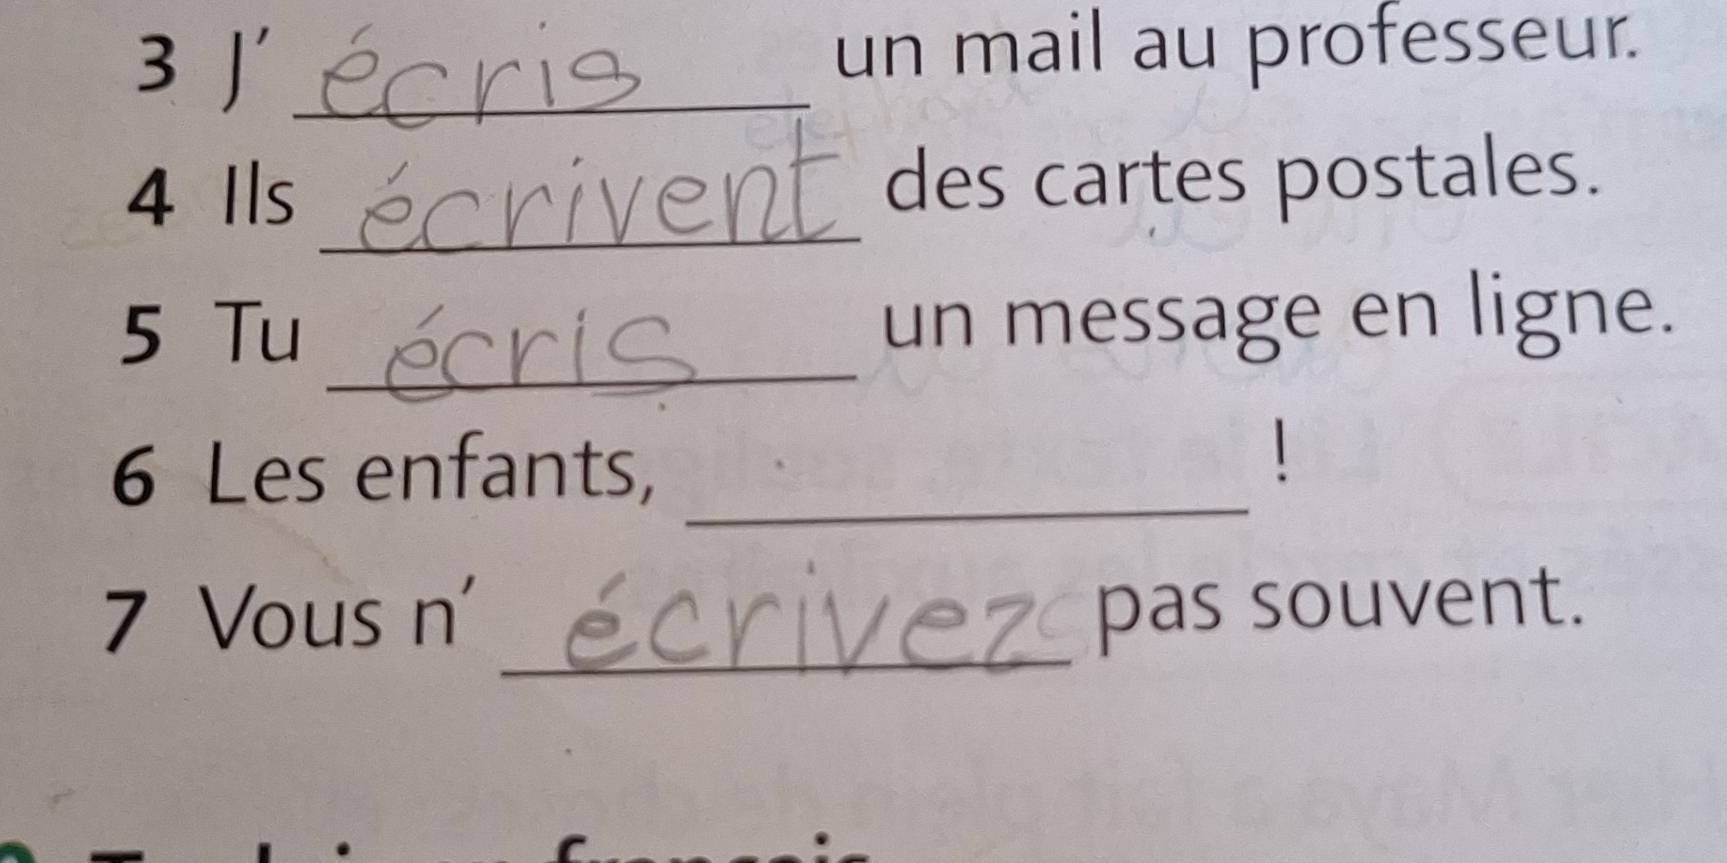 3 J' écris un mail au professeur.
4 Ils écrivent des cartes postales.
5 Tu écris un message en ligne.
6 Les enfants, ____________ !
7 Vous n' écrivez pas souvent.